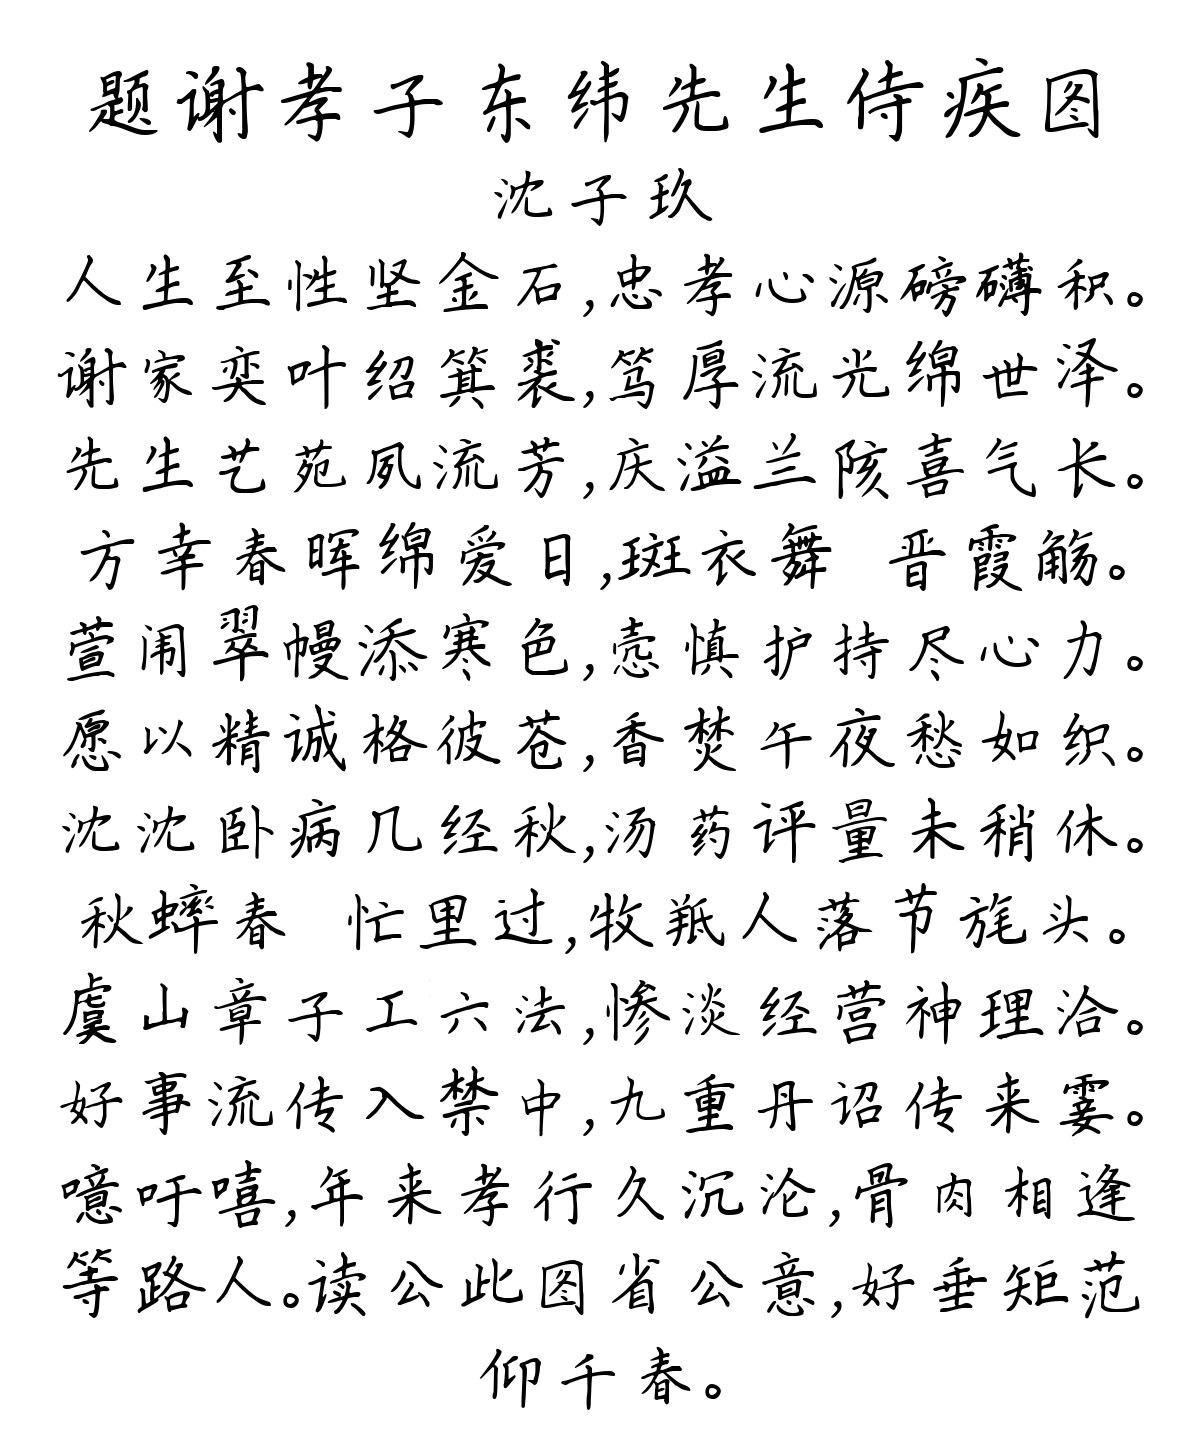 题谢孝子东纬先生侍疾图
沈子玖
人生至性坚金石,忠孝心源磅礴积。
谢家奕叶绍箕裘,笃厚流光绵世泽。
先生艺苑夙流芳,庆溢兰陔喜气长。
方幸春晖绵爱日,斑衣舞 晋霞觞。
萱闱翠幔添寒色,悫慎护持尽心力。
愿以精诚格彼苍,香焚午夜愁如织。
沈沈卧病几经秋,汤药评量未稍休。
秋蟀春 忙里过,牧羝人落节旄头。
虞山章子工六法,惨淡经营神理洽。
好事流传入禁中,九重丹诏传来霎。
噫吁嘻,年来孝行久沉沦,骨肉相逢
等路人。读公此图省公意,好垂矩范
仰千春。